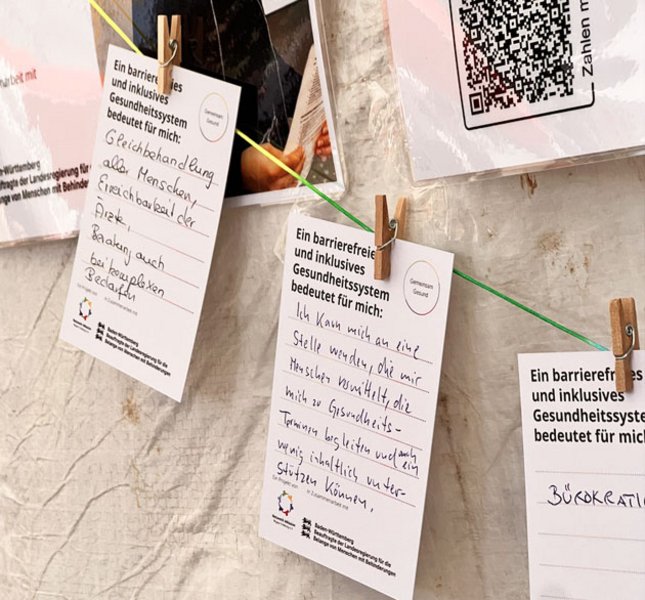 mit
Baden-Württemberg
Beauftragte der Landesregierung für die
Belange von Menschen mit Behinderungen
Zahlen
Ein barrierefreies
und inklusives
Gesundheitssystem
bedeutet für mich:
Gemeinsam
Gesund
Gleichbehandlung
aller Menschen,
Erreichbarkeit der
Ärzte,
Beratung auch
bei komplexen
Bedarfen
Ein Projekt von
in Zusammenarbeit mit
Baden-Württemberg
Beauftragte der Landesregierung für die
Belange von Menschen mit Behinderungen
Ein barrierefreies
und inklusives
Gesundheitssystem
bedeutet für mich:
Gemeinsam
Gesund
Ich kann mich an eine
Stelle wenden, die mir
Menschen vermittelt, die
mich zu Gesundheits-
Terminen begleiten und auch ein
wenig inhaltlich unter-
stützen können.
Ein Projekt von
in Zusammenarbeit mit
Baden-Württemberg
Beauftragte der Landesregierung für die
Belange von Menschen mit Behinderungen
Ein barrierefreies
und inklusives
Gesundheitssyste
bedeutet für mich
BÜROKRATI